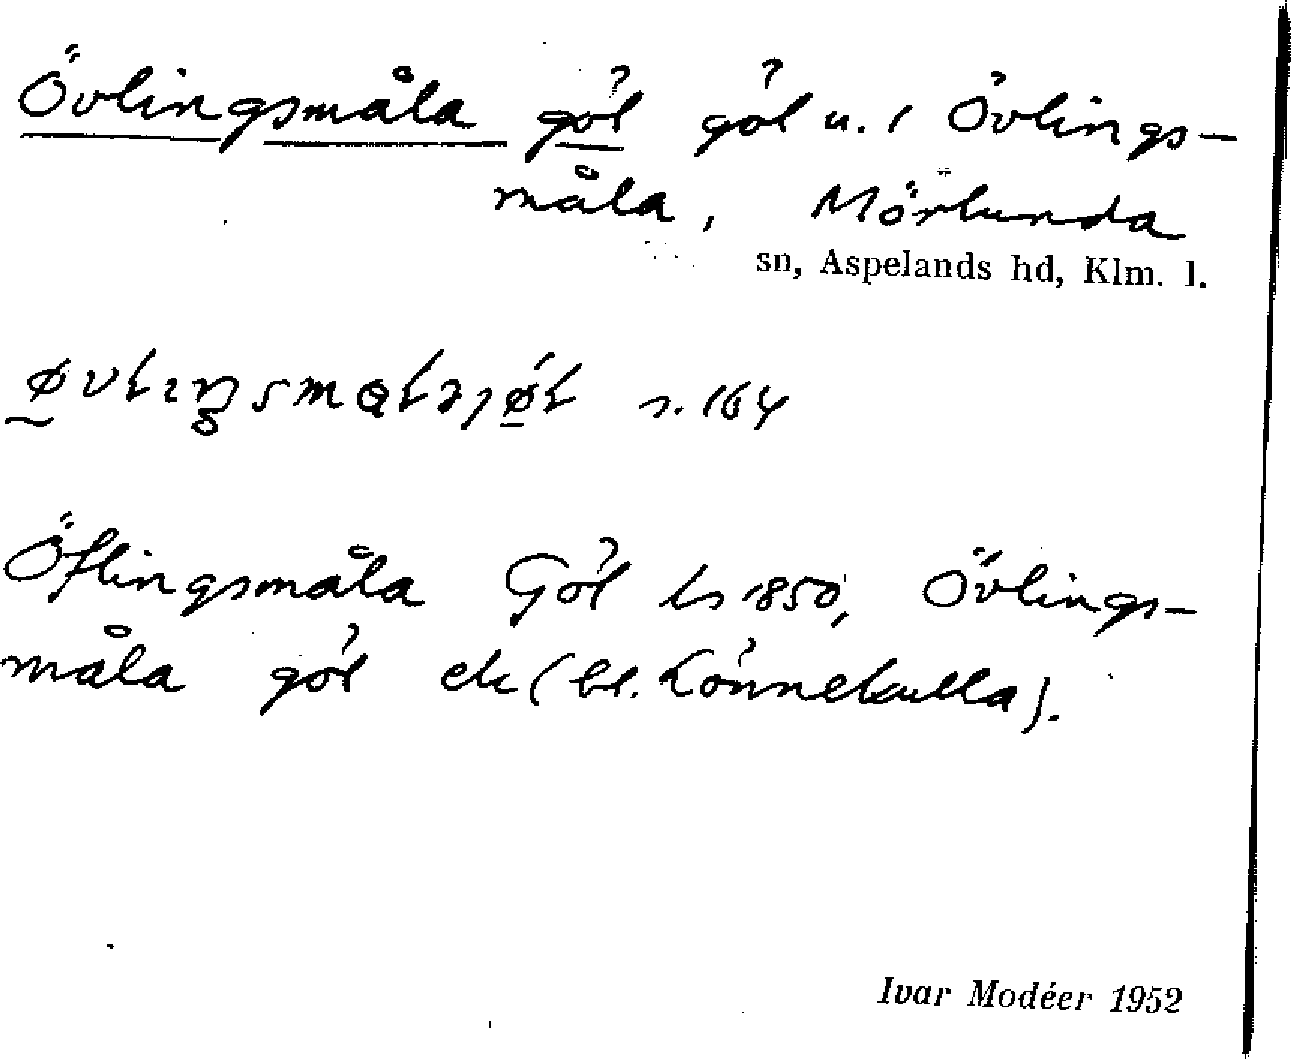 Övlingsmåla göl göl u. i Övlings-
måla, Mörlunda
sn, Aspelands hd, Klm. l.
164
Öflingsmåla Göl ls 1850, Övlings-
måla göl ek (bl. Lönnekulla).
Ivar Modéer 1952